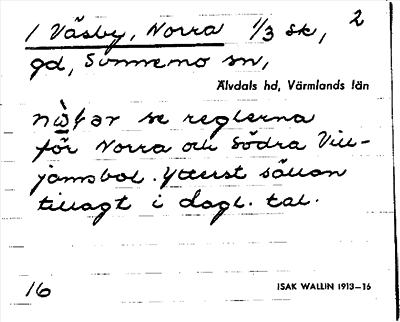 / Väsby, Norra 1/3 sk, 2
gd, Sunnemo sn,
Älvdals hd, Värmlands län
se reglerna
för Norra och Södra Vill-
jamsbol. Ytterst sällan
tillagt i dagl. tal.
16 ISAK WALLIN 1913–16